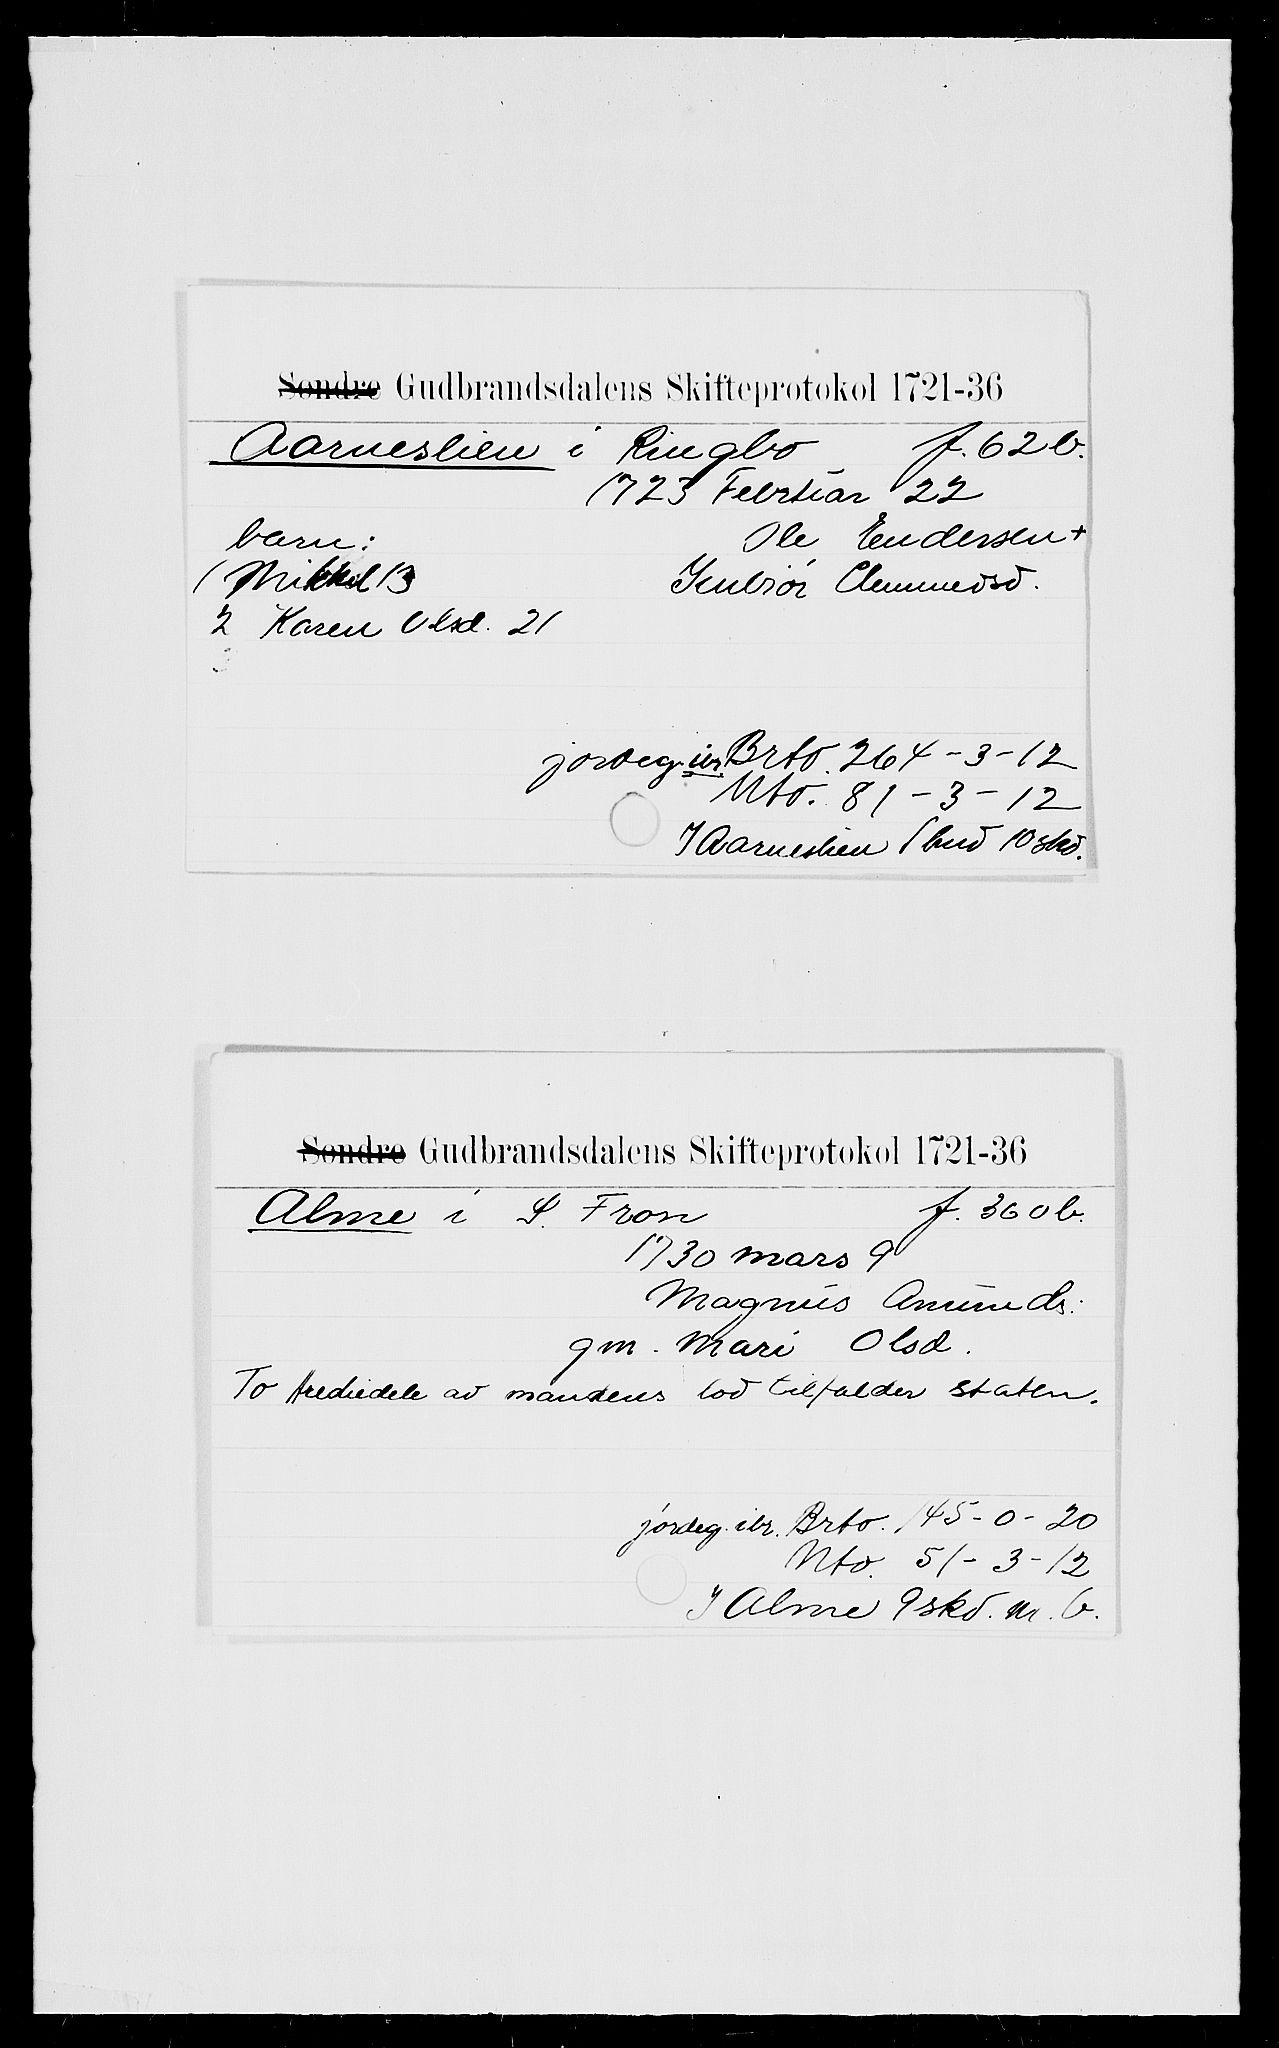 Søndre Gudbrandsdalens Skifteprotokol 1721-36
Aarneslien i Ringbo f. 62b.
1723 Februar 22
barn: Ole Endersen +
1 Mikkel 13 Clemmedsd.
2 Karen Olsd. 21
3
jordeg. ibr. Brto. 264-3-12
Nto. 81-3-12
I Aarneslien 1 hud 10 skd.
Søndre Gudbrandsdalens Skifteprotokol 1721-36
Alme i S. Fron f. 360b.
1730 mars 9
Magnus Amunds:
gm. Mari Olsd.
To trediedele av mandens lod tilfalder staten.
jordeg. ibr. Brto. 145-0-20
Nto. 51-3-12
I Alme 9 skd. m. b.